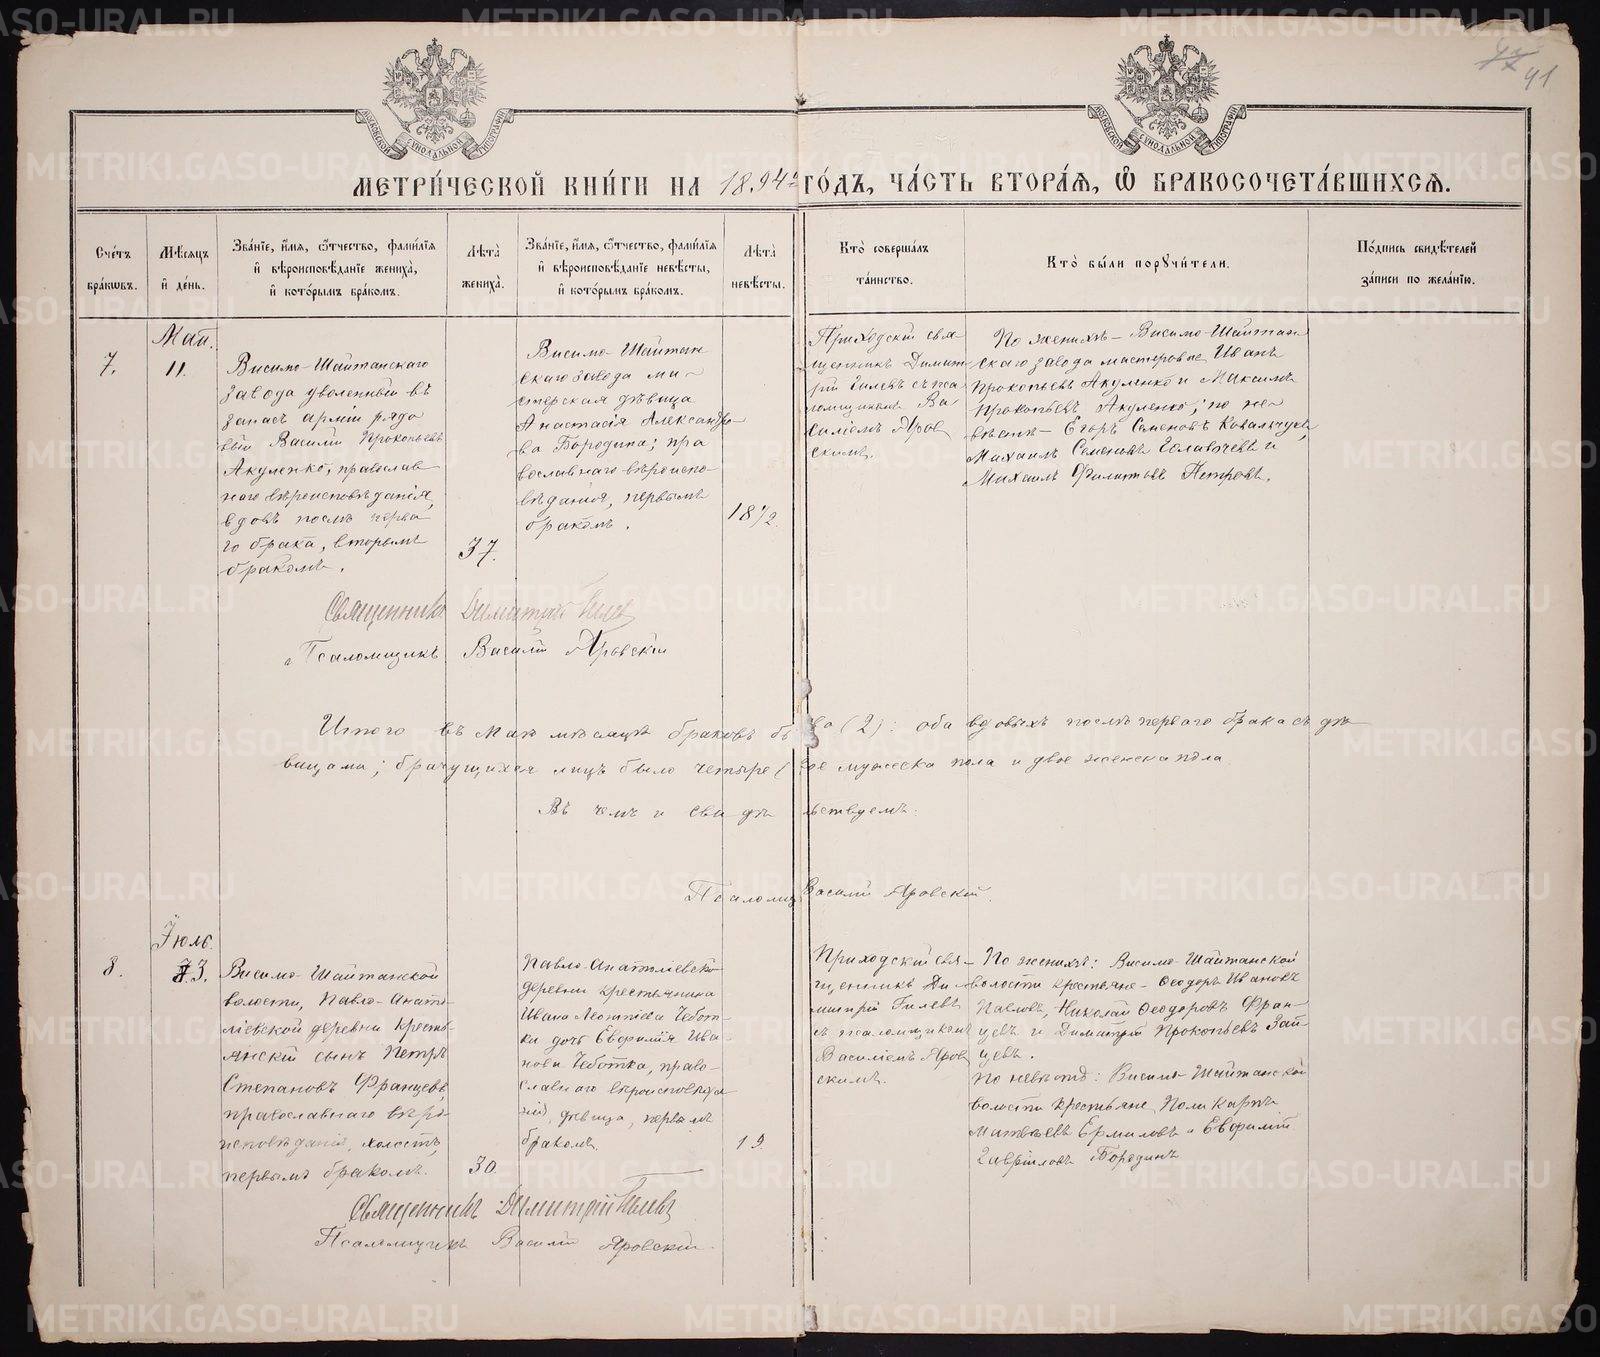 47 41
МОСКОВСКОЙ СѴНОДАЛЬНОЙ ТИПОГРАФІИ
МОСКОВСКОЙ СѴНОДАЛЬНОЙ ТИПОГРАФІИ
МЕТРИ́ЧЕСКОЙ КНИ́ГИ НА 1894 ГО́ДЪ, ЧА́СТЬ ВТОРА́Я, Ѽ БРАКОСОЧЕТА́ВШИХСЯ.
Сче́тъ бра́кωвъ.
Мѣ́сяцъ и҆ де́нь.
Зва́нїе, и҆́мя, ѻ҆́тчество, фами́лїя и҆ вѣроисповѣ́данїе жениха̀, и҆ кото́рымъ бра́комъ.
Лѣ́та жениха̀.
Зва́нїе, и҆́мя, ѻ҆́тчество, фами́лїя и҆ вѣроисповѣ́данїе невѣ́сты, и҆ кото́рымъ бра́комъ.
Лѣ́та невѣ́сты.
Кто̀ соверша́лъ та́инство.
Кто̀ бы́ли порꙋчи́тели.
По́дпись свидѣ́телей за́писи по жела́нїю.
7.
Май.
11.
Висимо-Шайтанскаго
завода уволенный въ
запасъ арміи рядо
вый Василій Прокопьевъ
Акуленко, православ
наго вѣроисповѣданія,
вдовъ послѣ перва
го брака, вторымъ
бракомъ.
37.
Висимо-Шайтан
скаго завода ма-
стерская дѣвица
Анастасія Александро-
ва Бородина; пра
вославнаго вѣроиспо-
вѣданія, первымъ
бракомъ.
18 1/2.
Приходскій свя-
щенникъ Димит
рій Гилевъ съ пса
ломщикомъ Ва
силіемъ Яров
скимъ.
По женихѣ - Висимо-Шайтан
скаго завода мастеровые Иванъ
Прокопьевъ Акуленко и Максимъ
Прокопьевъ Акуленко; по не-
вѣстѣ - Егоръ Семеновъ Ковальчукъ,
Михаилъ Семеновъ и
Михаилъ Филиповъ Петровъ.
Священникъ Димитрій Гилевъ
Псаломщикъ Василій Яровскій
Итого въ Маѣ мѣсяцѣ браковъ бы два (2): оба вдовыхъ послѣ перваго брака съ дѣ
вицами; брачущихся лицъ было четыре двое мужеска пола и двое женска пола
Въ чемъ и свидѣтельствуемъ:
Псаломщ Василій Яровскій.
8.
Іюль.
3.
Висимо-Шайтанской
волости, Павло-Анато-
ліевской деревни кресть-
янскій сынъ Петръ
Степановъ Францевъ,
православнаго вѣро-
исповѣданія, холостъ,
первымъ бракомъ.
30.
Павло-Анатоліевской
деревни крестьянина
Ивана Леонтіева Чебот-
ка дочь Евфимія Ива-
нова Чеботка, право-
славнаго вѣроисповѣда
нія, дѣвица, первымъ
бракомъ.
19.
Приходскій свя-
щенникъ Ди-
митрій Гилевъ
съ псаломщикомъ
Василіемъ Яров
скимъ.
По женихѣ: Висимо-Шайтанской
волости крестьяне - Ѳеодоръ Ивановъ
Павловъ, Николай Ѳеодоровъ Фран-
цевъ и Димитрій Прокопьевъ Зай-
цевъ.
По невѣстѣ: Висимо-Шайтанской
волости крестьяне, Поликарпъ
Матвѣевъ Ермиловъ и Евфимій
Гавріиловъ Бородинъ
Священникъ Димитрій Гилевъ
Псаломщикъ Василій Яровскій.
METRIKI.GASO-URAL.RU